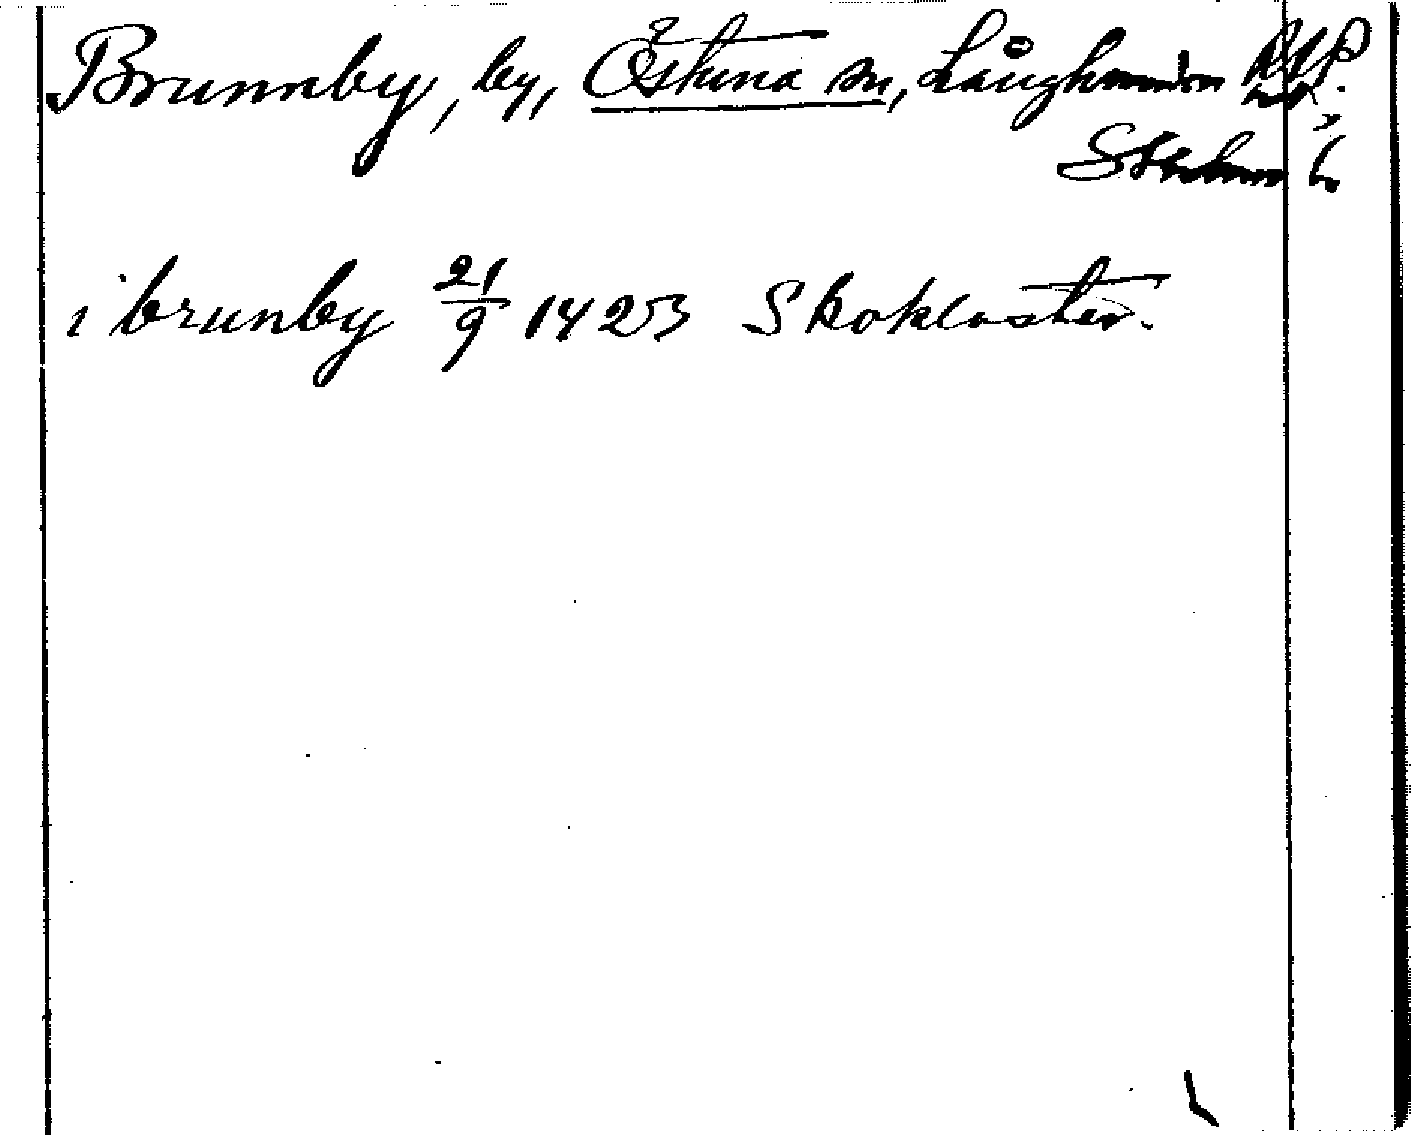 Brunnby, by, Östuna sn, Långhundra
Stockholms l.
i brunby 21/9 1423 Skokloster.